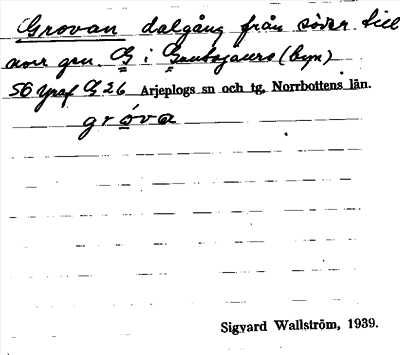 Grovan dalgång från söder till
norr gm. G i Gautosjaurs (byn)
56 Ypaf G 26 Arjeplogs sn och tg, Norrbottens län.
gróva
Sigvard Wallström, 1939.